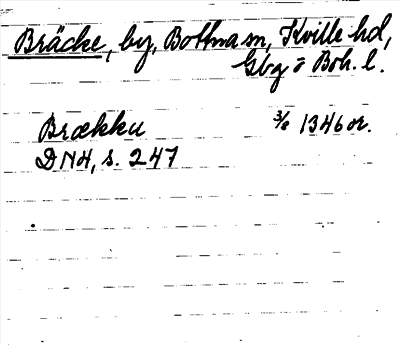 Bräcke, by, Bottna sn, Kville hd,
Gbg o Boh. l.
Brækku 3/8 1346 or.
DN4, s. 247